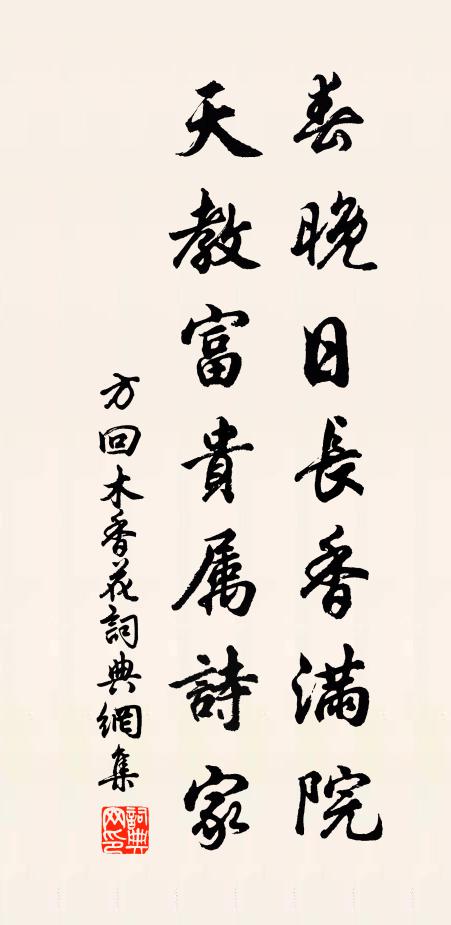 春晚日長香滿院
天教富貴属詩家
方回木香花詞典網集
詞典網印